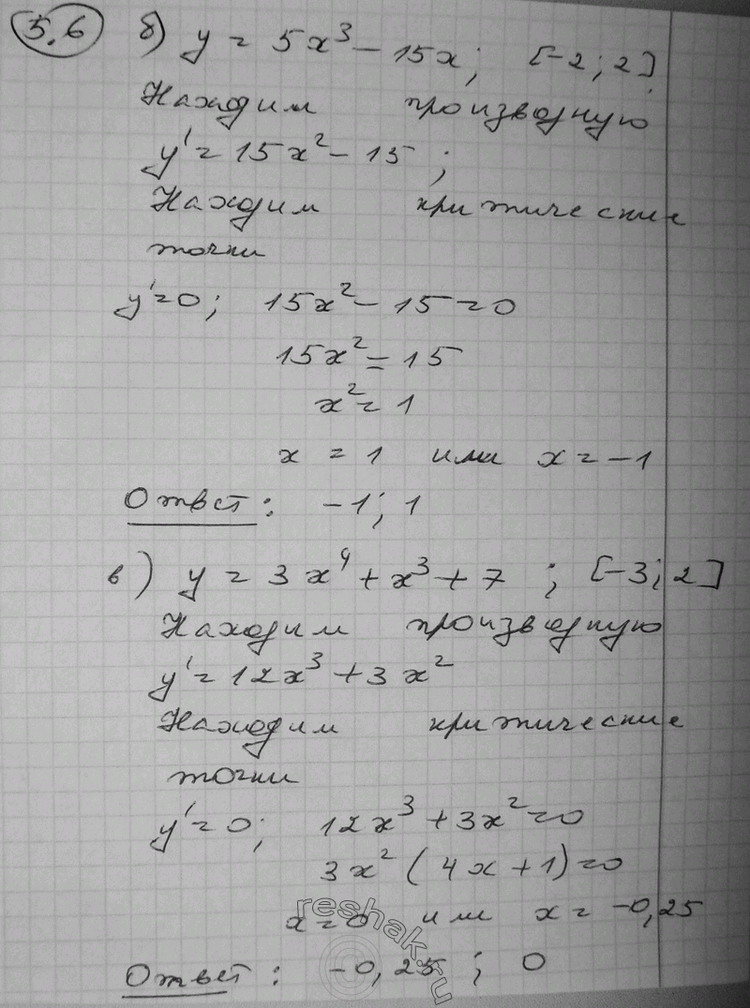 5.6 б) y = 5x³ - 15x; [-2; 2]
Находим производную
y' = 15x² - 15;
Находим критические
точки
y' = 0; 15x² - 15 = 0
15x² = 15
x² = 1
x = 1 или x = -1
Ответ: -1; 1
в) y = 3x⁴ + x³ + 7; [-3; 2]
Находим производную
y' = 12x³ + 3x²
Находим критические
точки
y' = 0; 12x³ + 3x² = 0
3x² (4x + 1) = 0
x = 0 или x = -0,25
Ответ: -0,25; 0
reshak.ru